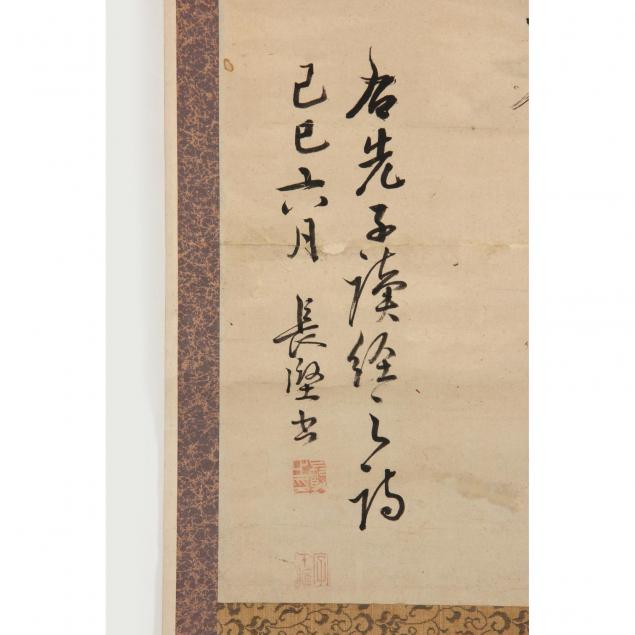 右先子讀經之詩
己巳六月 長堅書